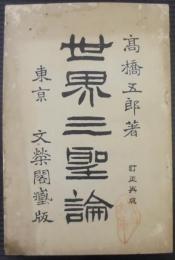 高橋五郎著
訂正再版
世界三聖論
東京 文榮閣藏版